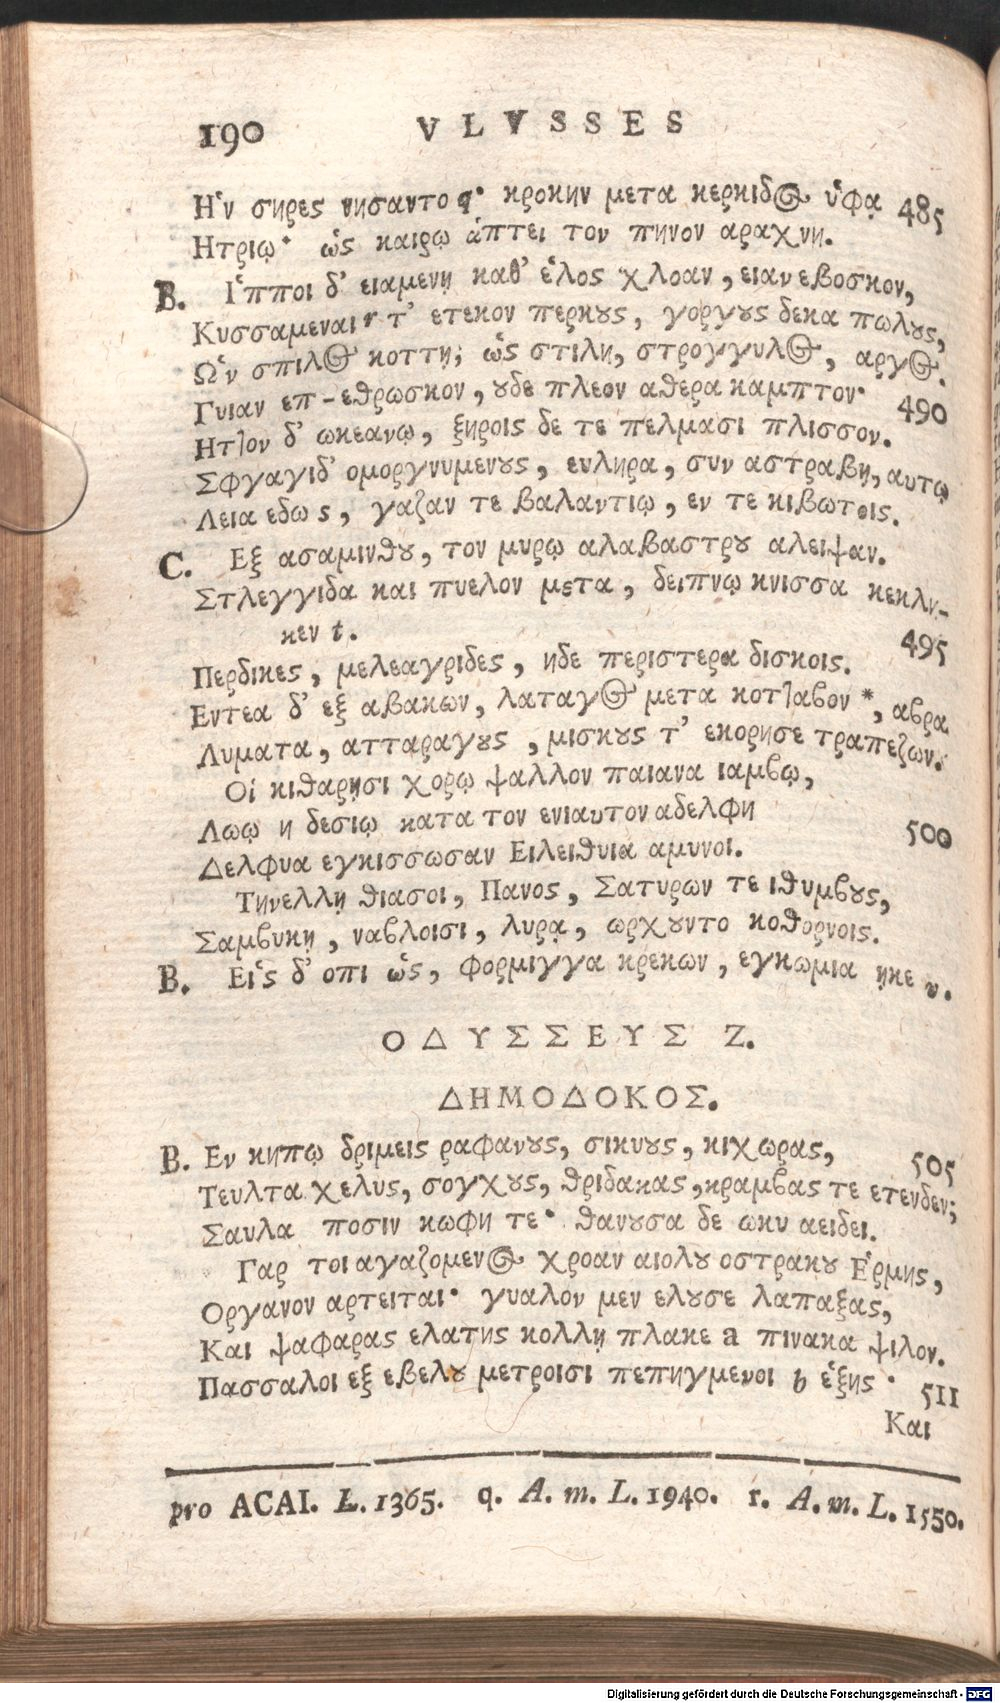 190 VLVSSES
Ηʽν σηρες νησαντο q· κροκην μετα κερκιδος ὑφᾳ 485
Ητριῳ· ὡς καιρῳ ἁπτει τον πηνον αραχνη.
B. Ιʽπποι δ' ειαμενῃ καθ' ἑλος χλοαν, ειαν εβοσκον,
Κυσσαμεναι r τ' ετεκον περκους, γοργους δεκα πωλους,
Ωʽν σπιλος κοττῃ; ὡς στιλη, στρογγυλος, αργος.
Γυιαν επ-εθρωσκον, ουδε πλεον αθερα καμπτον· 490
Ηττον δ' ωκεανῳ, ξηροις δε τε πελμασι πλισσον.
Σφγαγιδ' ομοργνυμενους, ευληρα, συν αστραβῃ, αυτῳ
Λεια εδω s, γαζαν τε βαλαντιῳ, εν τε κιβωτοις.
C. Εξ ασαμινθου, τον μυρῳ αλαβαστρου αλειψαν.
Στλεγγιδα και πυελον μετα, δειπνῳ κνισσα κεκλη-
κεν t. 495
Περδικες, μελεαγριδες, ηδε περιστερα δισκοις.
Εντεα δ' εξ αβακων, λαταγος μετα κοτταβον *, αβρα
Λυματα, ατταραγους, μισκους τ' εκορησε τραπεζων.
Οἱ κιθαρῃσι χορῳ ψαλλον παιανα ιαμβῳ,
Λωῳ η δεσιῳ κατα τον ενιαυτον αδελφη
Δελφυα εγκισσωσαν Ειλειθυια αμυνοι. 500
Τηνελλῃ θιασοι, Πανος, Σατυρων τε ιθυμβους,
Σαμβυκῃ, ναβλοισι, λυρᾳ, ωρχουντο κοθορνοις.
B. Εἱς δ' οπι ὡς, φορμιγγα κρεκων, εγκωμια ῃκε v.
ΟΔΥΣΣΕΥΣ Ζ.
ΔΗΜΟΔΟΚΟΣ.
B. Εν κηπῳ δριμεις ραφανους, σικυους, κιχωρας, 505
Τευλτα χελυς, σογχους, θριδακας, κραμβας τε ετενδεν;
Σαυλα ποσιν κωφη τε· θανουσα δε ωκυ αειδει.
Γαρ τοι αγαζομενος χροαν αιολου οστρακου Εʽρμης,
Οργανον αρτειται· γυαλον μεν ελουσε λαπαξας,
Και ψαφαρας ελατης κολλῃ πλακε a πινακα ψιλον.
Πασσαλοι εξ εβελου μετροισι πεπηγμενοι b ἑξης· 511
Και
pro ACAI. L. 1365. q. A. m. L. 1940. r. A. m. L. 1550.
Digitalisierung gefördert durch die Deutsche Forschungsgemeinschaft - DFG